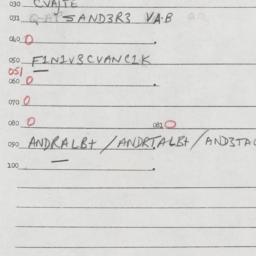 030 CVAITE
031 SAND3R3 VAB
040 0
050 F1N1V3CVANC1K
051
060 0
070 0
080 0 081 0
090 ANDRALB+ / ANDRTALB+ / AND3TA
100